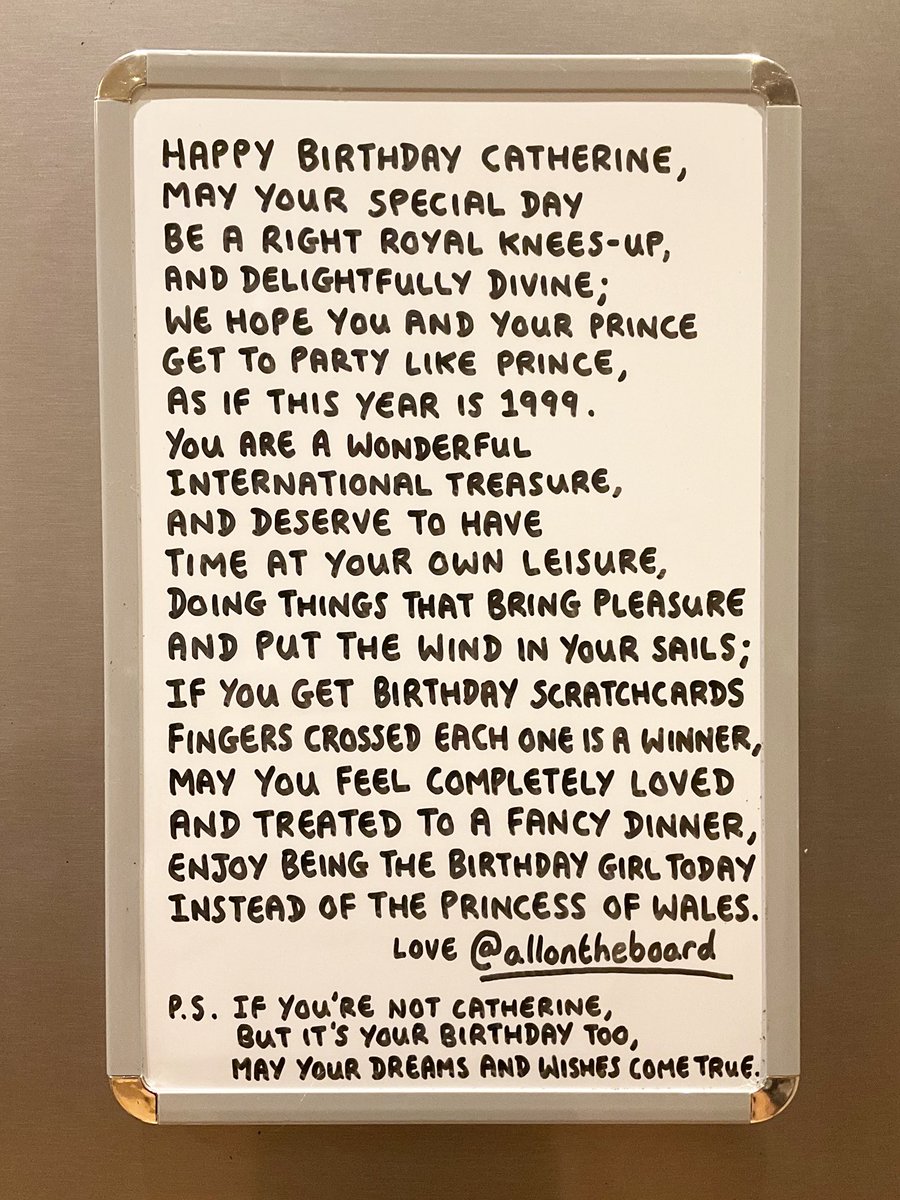 HAPPY BIRTHDAY CATHERINE,
MAY YOUR SPECIAL DAY
BE A RIGHT ROYAL KNEES-UP,
AND DELIGHTFULLY DIVINE;
WE HOPE YOU AND YOUR PRINCE
GET TO PARTY LIKE PRINCE,
AS IF THIS YEAR IS 1999.
YOU ARE A WONDERFUL
INTERNATIONAL TREASURE,
AND DESERVE TO HAVE
TIME AT YOUR OWN LEISURE,
DOING THINGS THAT BRING PLEASURE
AND PUT THE WIND IN YOUR SAILS;
IF YOU GET BIRTHDAY SCRATCHCARDS
FINGERS CROSSED EACH ONE IS A WINNER,
MAY YOU FEEL COMPLETELY LOVED
AND TREATED TO A FANCY DINNER,
ENJOY BEING THE BIRTHDAY GIRL TODAY
INSTEAD OF THE PRINCESS OF WALES.
LOVE @allontheboard
P.S. IF YOU'RE NOT CATHERINE,
BUT IT'S YOUR BIRTHDAY TOO,
MAY YOUR DREAMS AND WISHES COME TRUE.